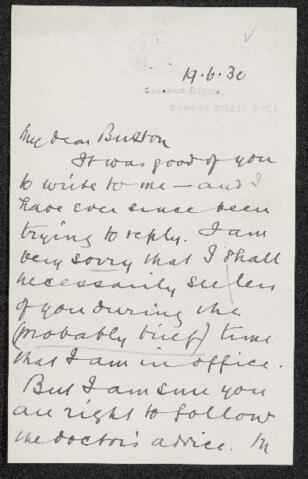 19.6.30
Colonial Office,
Downing Street, S.W.1.
My dear Buxton
It was good of you
to write to me — and I
have ever since been
trying to reply. I am
very sorry that I shall
necessarily see less
of you during the
(probably brief) time
that I am in office.
But I am sure you
are right to follow
the doctor's advice. In